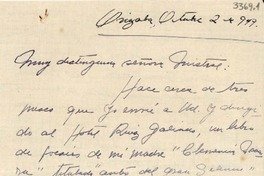 3369.1
Orizaba, Octubre 2 de 949.
Muy distinguida señora Mistral:
Hace cerca de tres
meses que yo envié a Ud. y dirigido
al Hotel Ruiz Galindo, un libro
de poesías de mi madre "Clemencia
" titulado